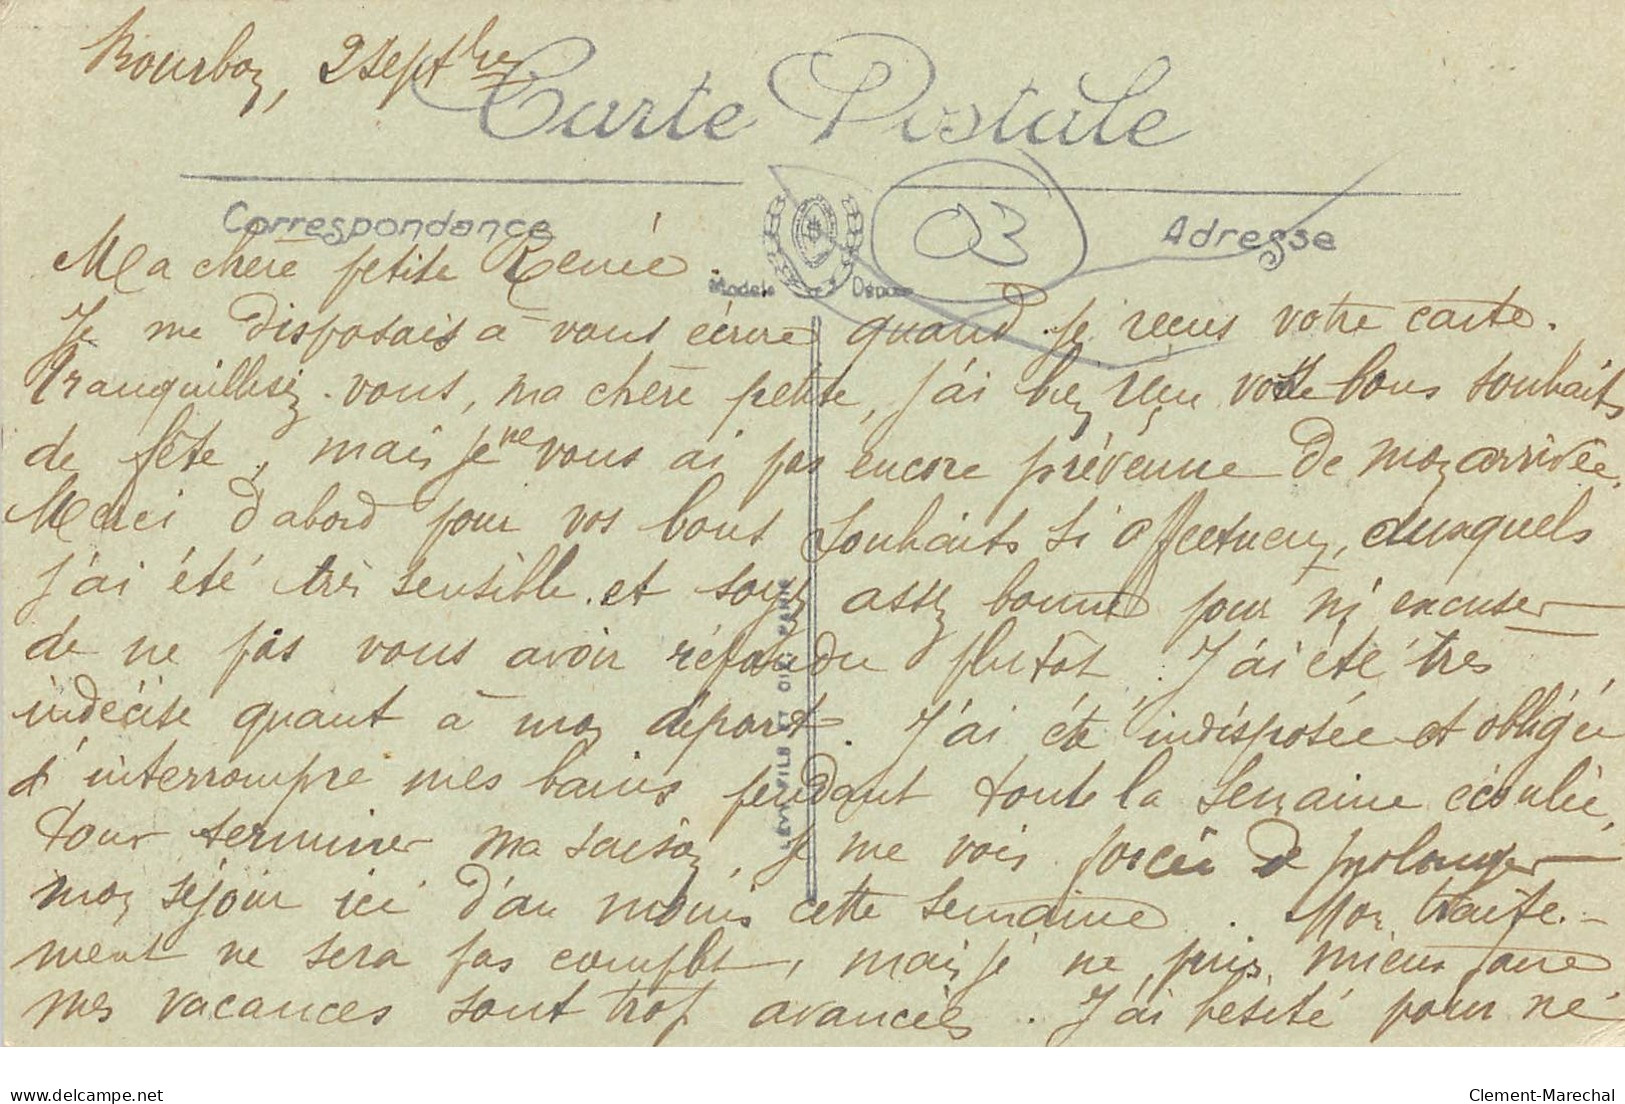 Bourbon, 2 septbre
Carte Postale
Correspondance
Adresse
03
Modèle Déposé
Ma chère petite Renée.
Je me disposais à vous écrire quand je reçus votre carte.
Tranquillisez-vous, ma chère petite, j'ai bien reçu votre bons souhaits
de fête, mais je ne vous ai pas encore prévenue de mon arrivée.
Merci d'abord pour vos bons souhaits si affectueux, auxquels
j'ai été très sensible. et soyez assez bonne pour m'excuser
de ne pas vous avoir répondu plutôt. J'ai été très
indécise quant à mon départ. J'ai été indisposée et obligée
d'interrompre mes bains pendant toute la semaine écoulée,
Pour terminer ma saison, je me vois forcée de prolonger
mon séjour ici d'au moins cette semaine. Mon traite-
ment ne sera pas complet, mais je ne puis mieux faire
mes vacances sont trop avancées. J'ai hésité pour ne
LEVY FILS ET CIE PARIS
delcampe.net
Clement-Marechal